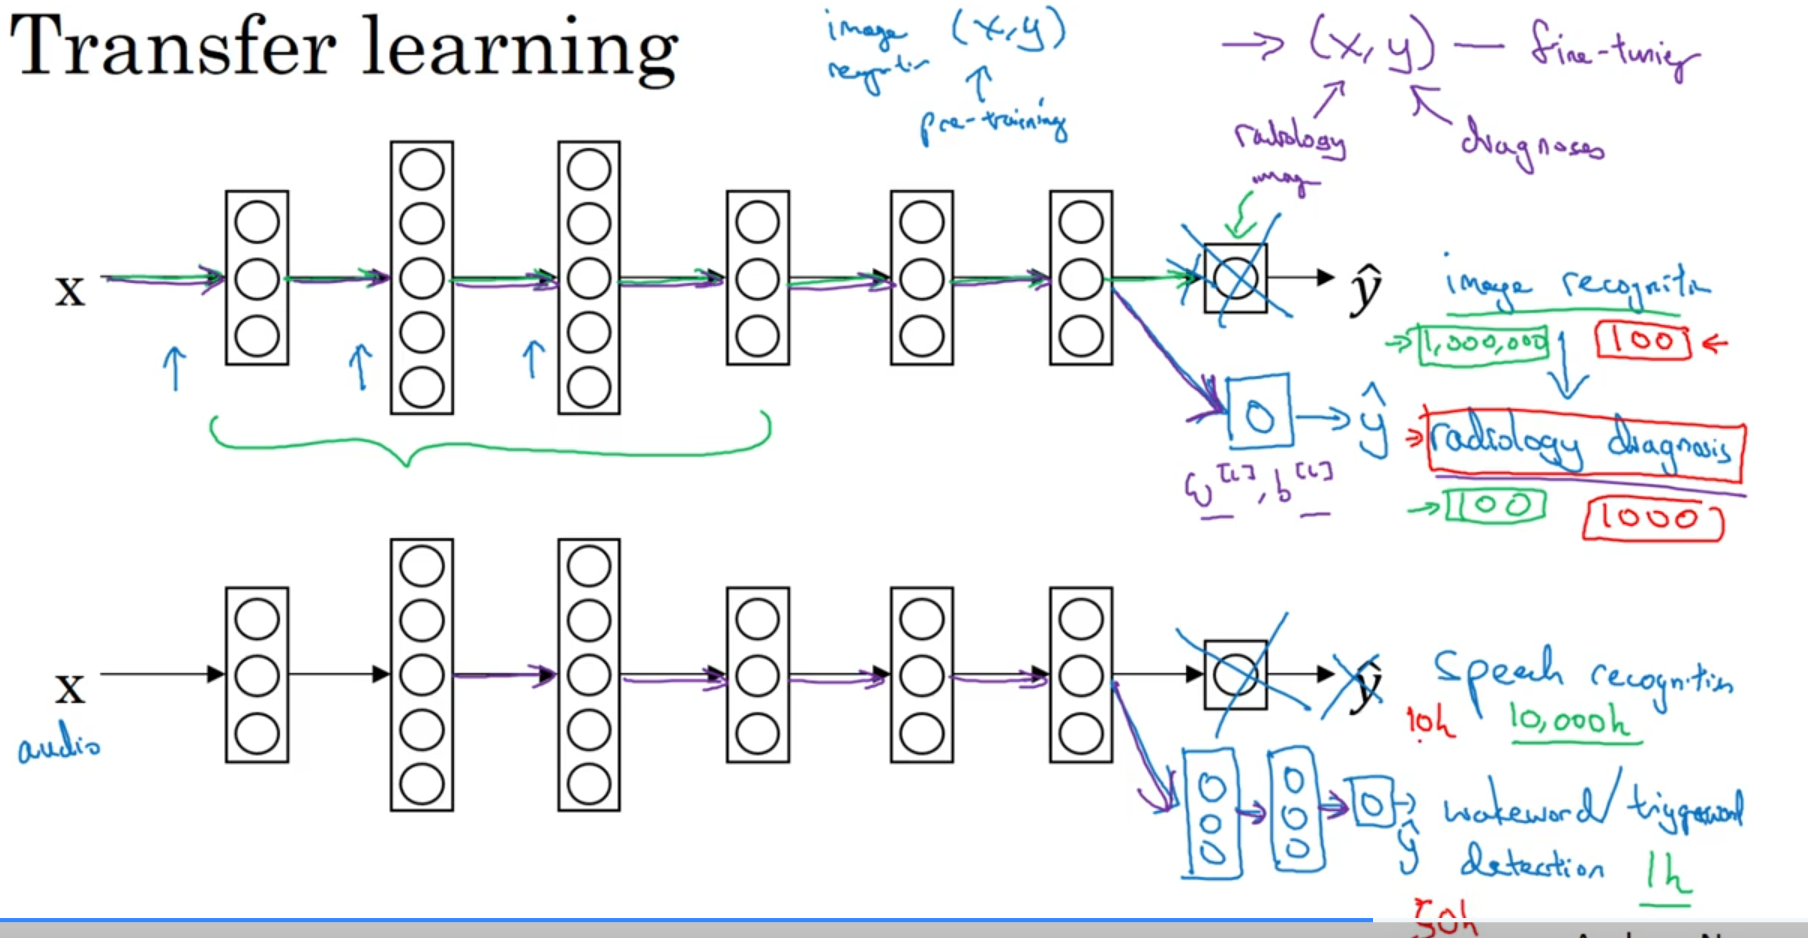 Transfer learning
image (x,y)
recognition
pre-training
→ (x, y) — fine-tuning
radiology
image
diagnoses
x
ŷ
image recognition
→ 1,000,000 100 ←
→ ŷ
radiology diagnosis
W[L], b[L]
→ 100 1000
x
audio
ŷ
speech recognition
10h 10,000h
ŷ
wakeword/triggerword
detection 1h
50h